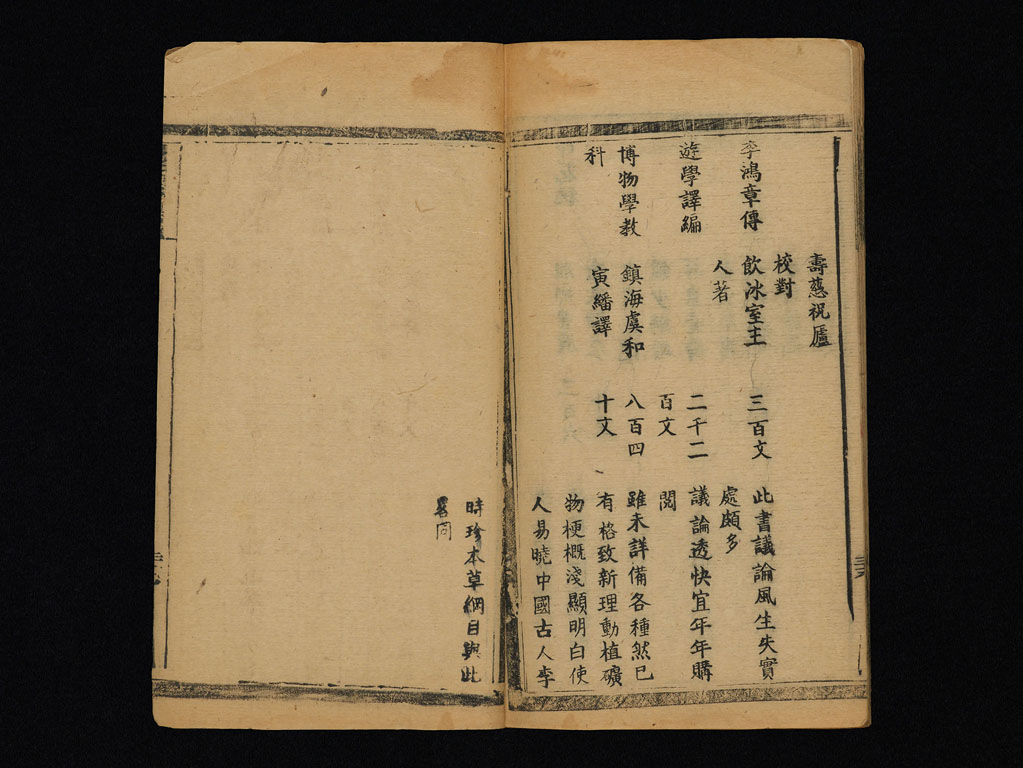 壽慈祝廬
校對
李鴻章傳 飲冰室主 三百文 此書議論風生失實
人著 處頗多
遊學譯編 二千二 議論透快宜年年購
百文 閱
博物學教 鎮海虞和 八百四 雖未詳備各種然已
科 寅繙譯 十文 有格致新理動植礦
物梗概淺顯明白使
人易曉中國古人李
時珍本草綱目與此
畧同